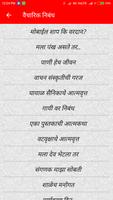 वैचारिक निबंध
मोबाईल शाप कि वरदान?
मला पंख असते तर..
पाणी हेच जीवन
वाचन संस्कृतीची गरज
घायाळ सैनिकाचे आत्मवृत्त
गायी वर निबंध
एका पुस्तकाची आत्मकथा
वटवृक्षाचे आत्मवृत्त
मला देव भेटला तर
संगणक माझा सोबती
शाळेचं मनोगत